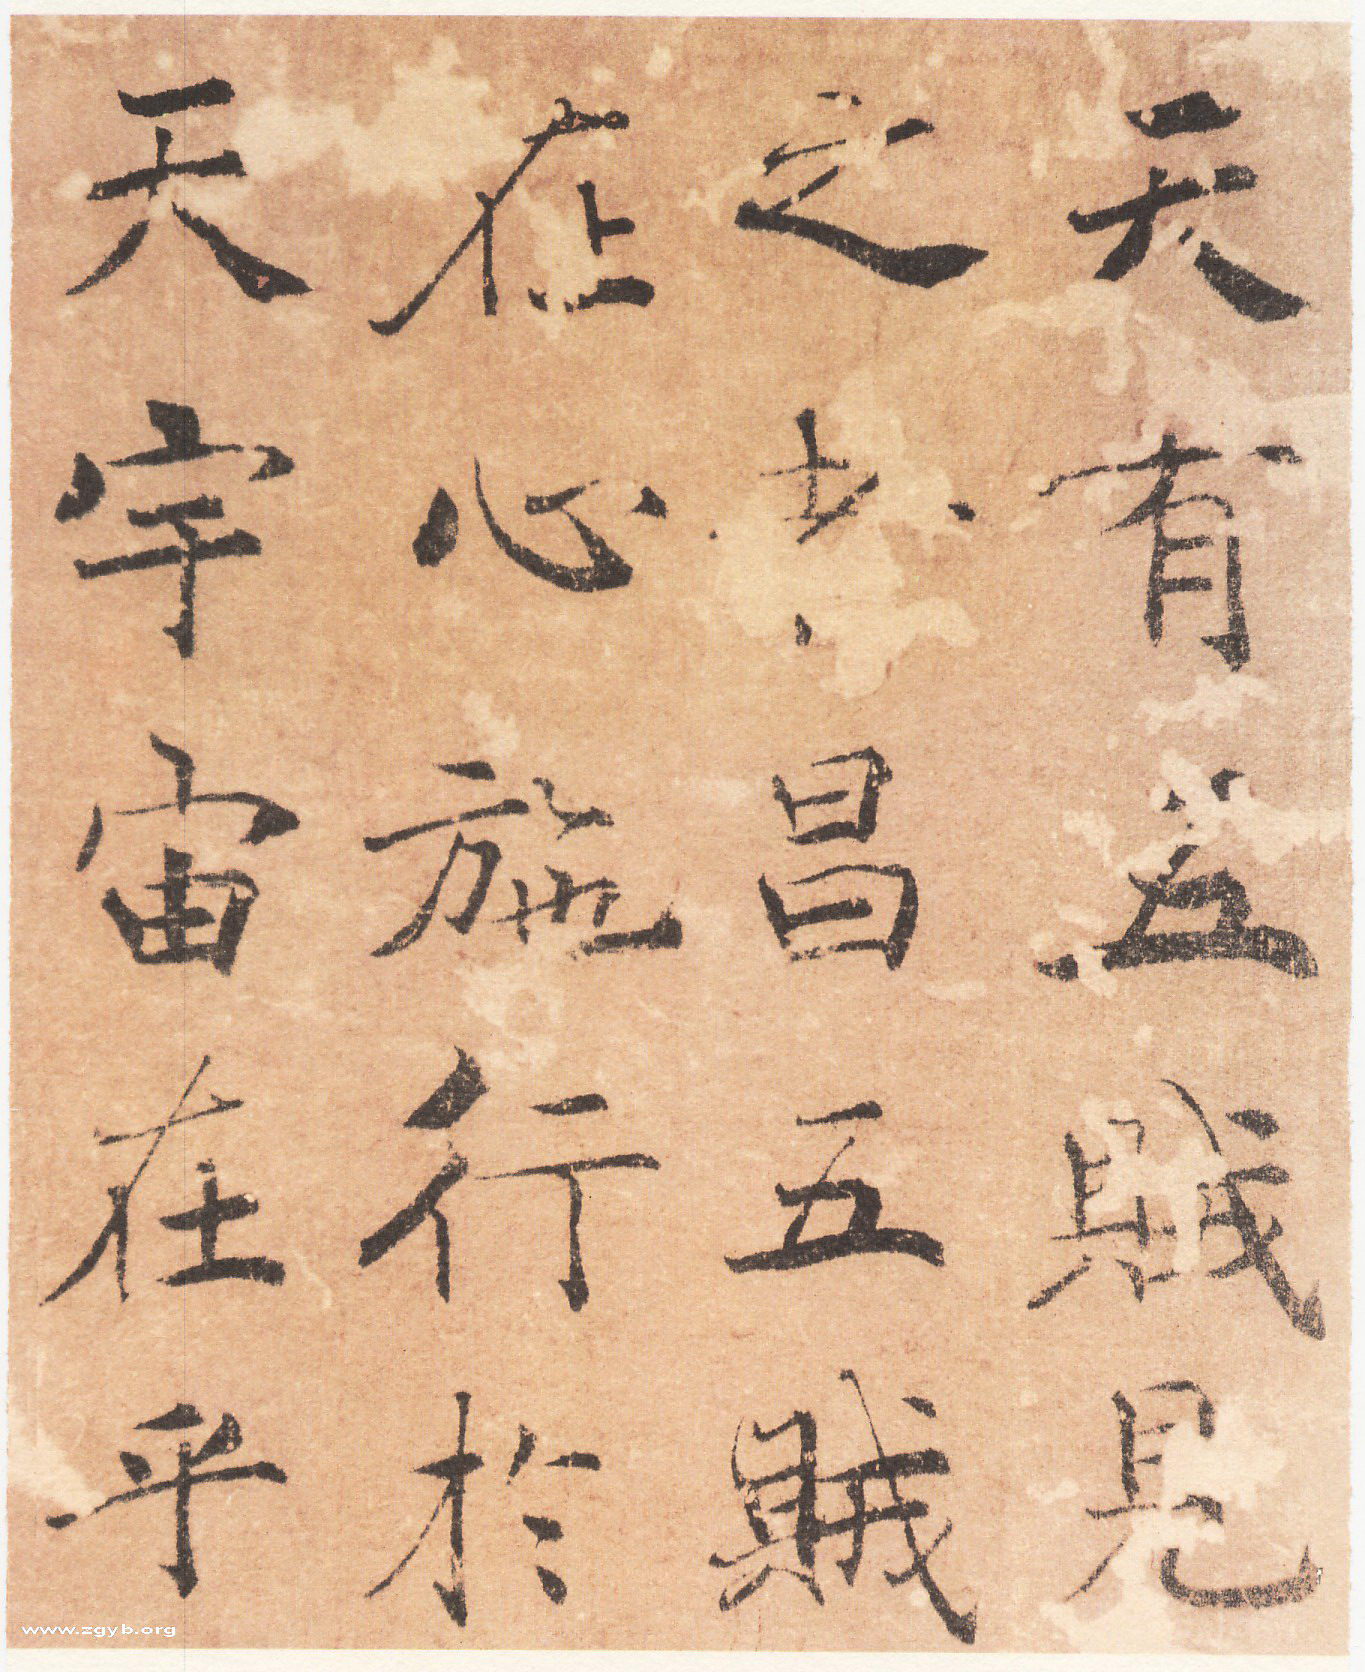 天有五賊見
之者昌五賊
在心施行於
天宇宙在乎
www.zgyb.org